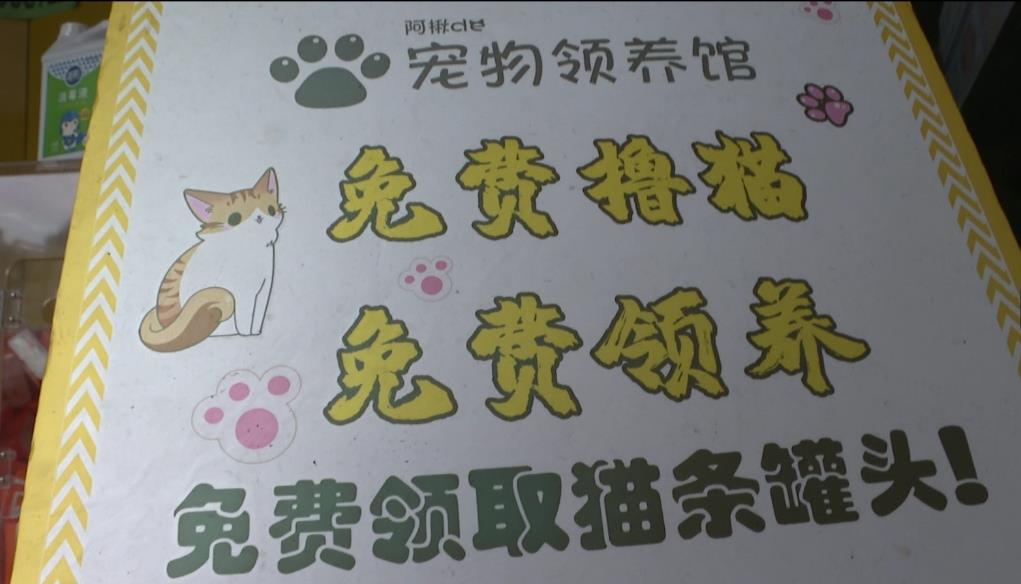 阿楸
宠物领养馆
免费撸猫
免费领养
免费领取猫条罐头!